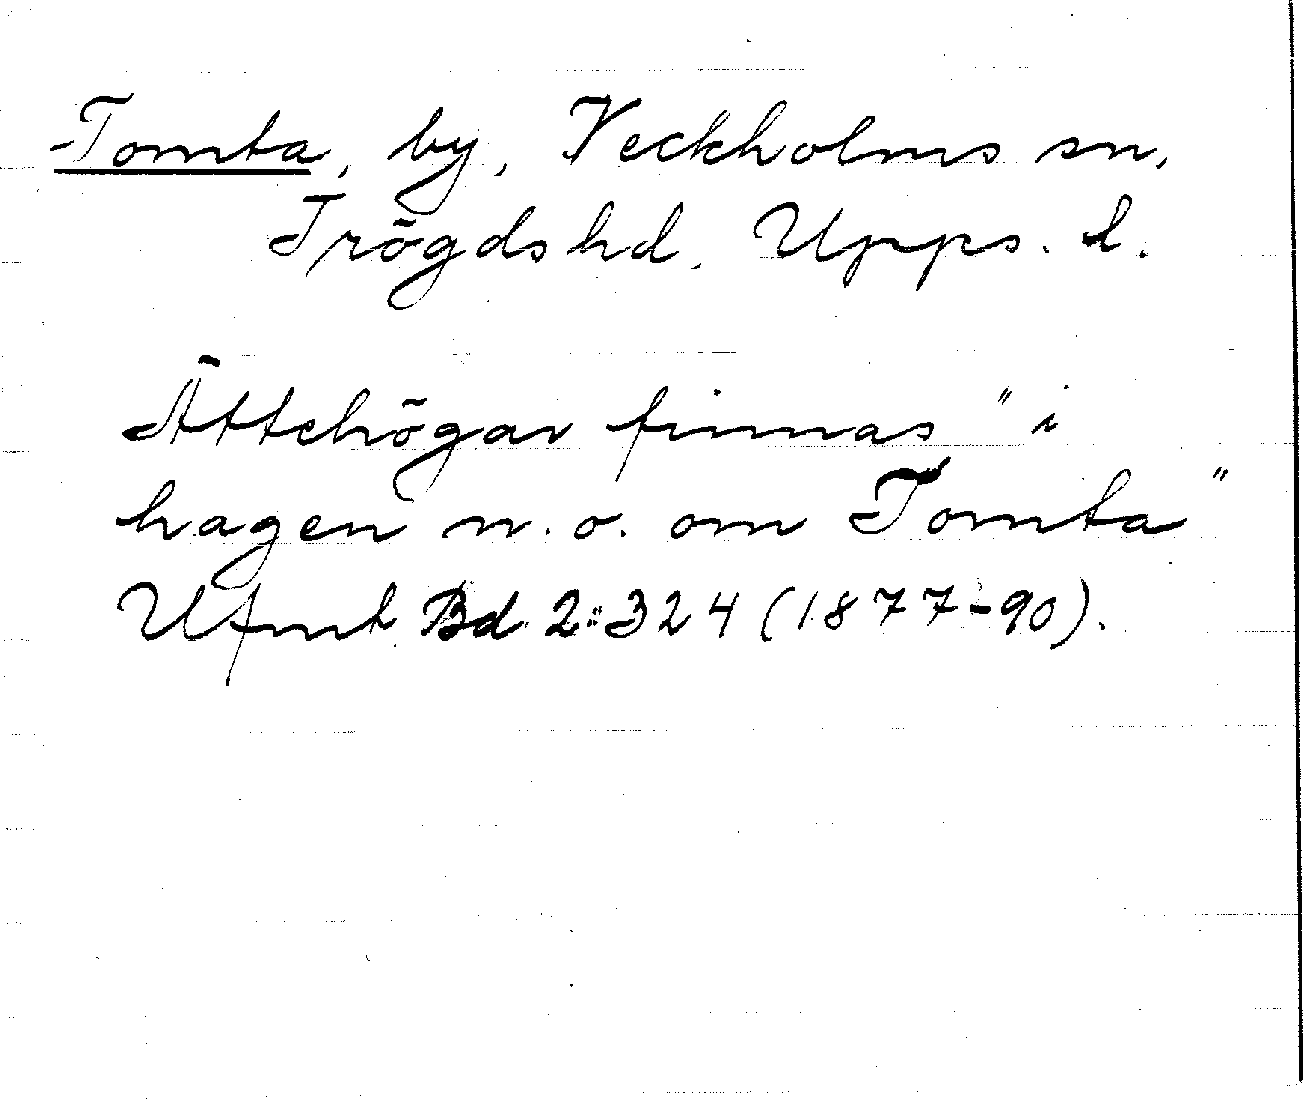 Tomta, by, Veckholms sn,
Trögds hd. Upps. l.
Ättehögar finnas "i
hagen n.o. om Tomta"
Ufmt Bd 2:324 (1877-90).